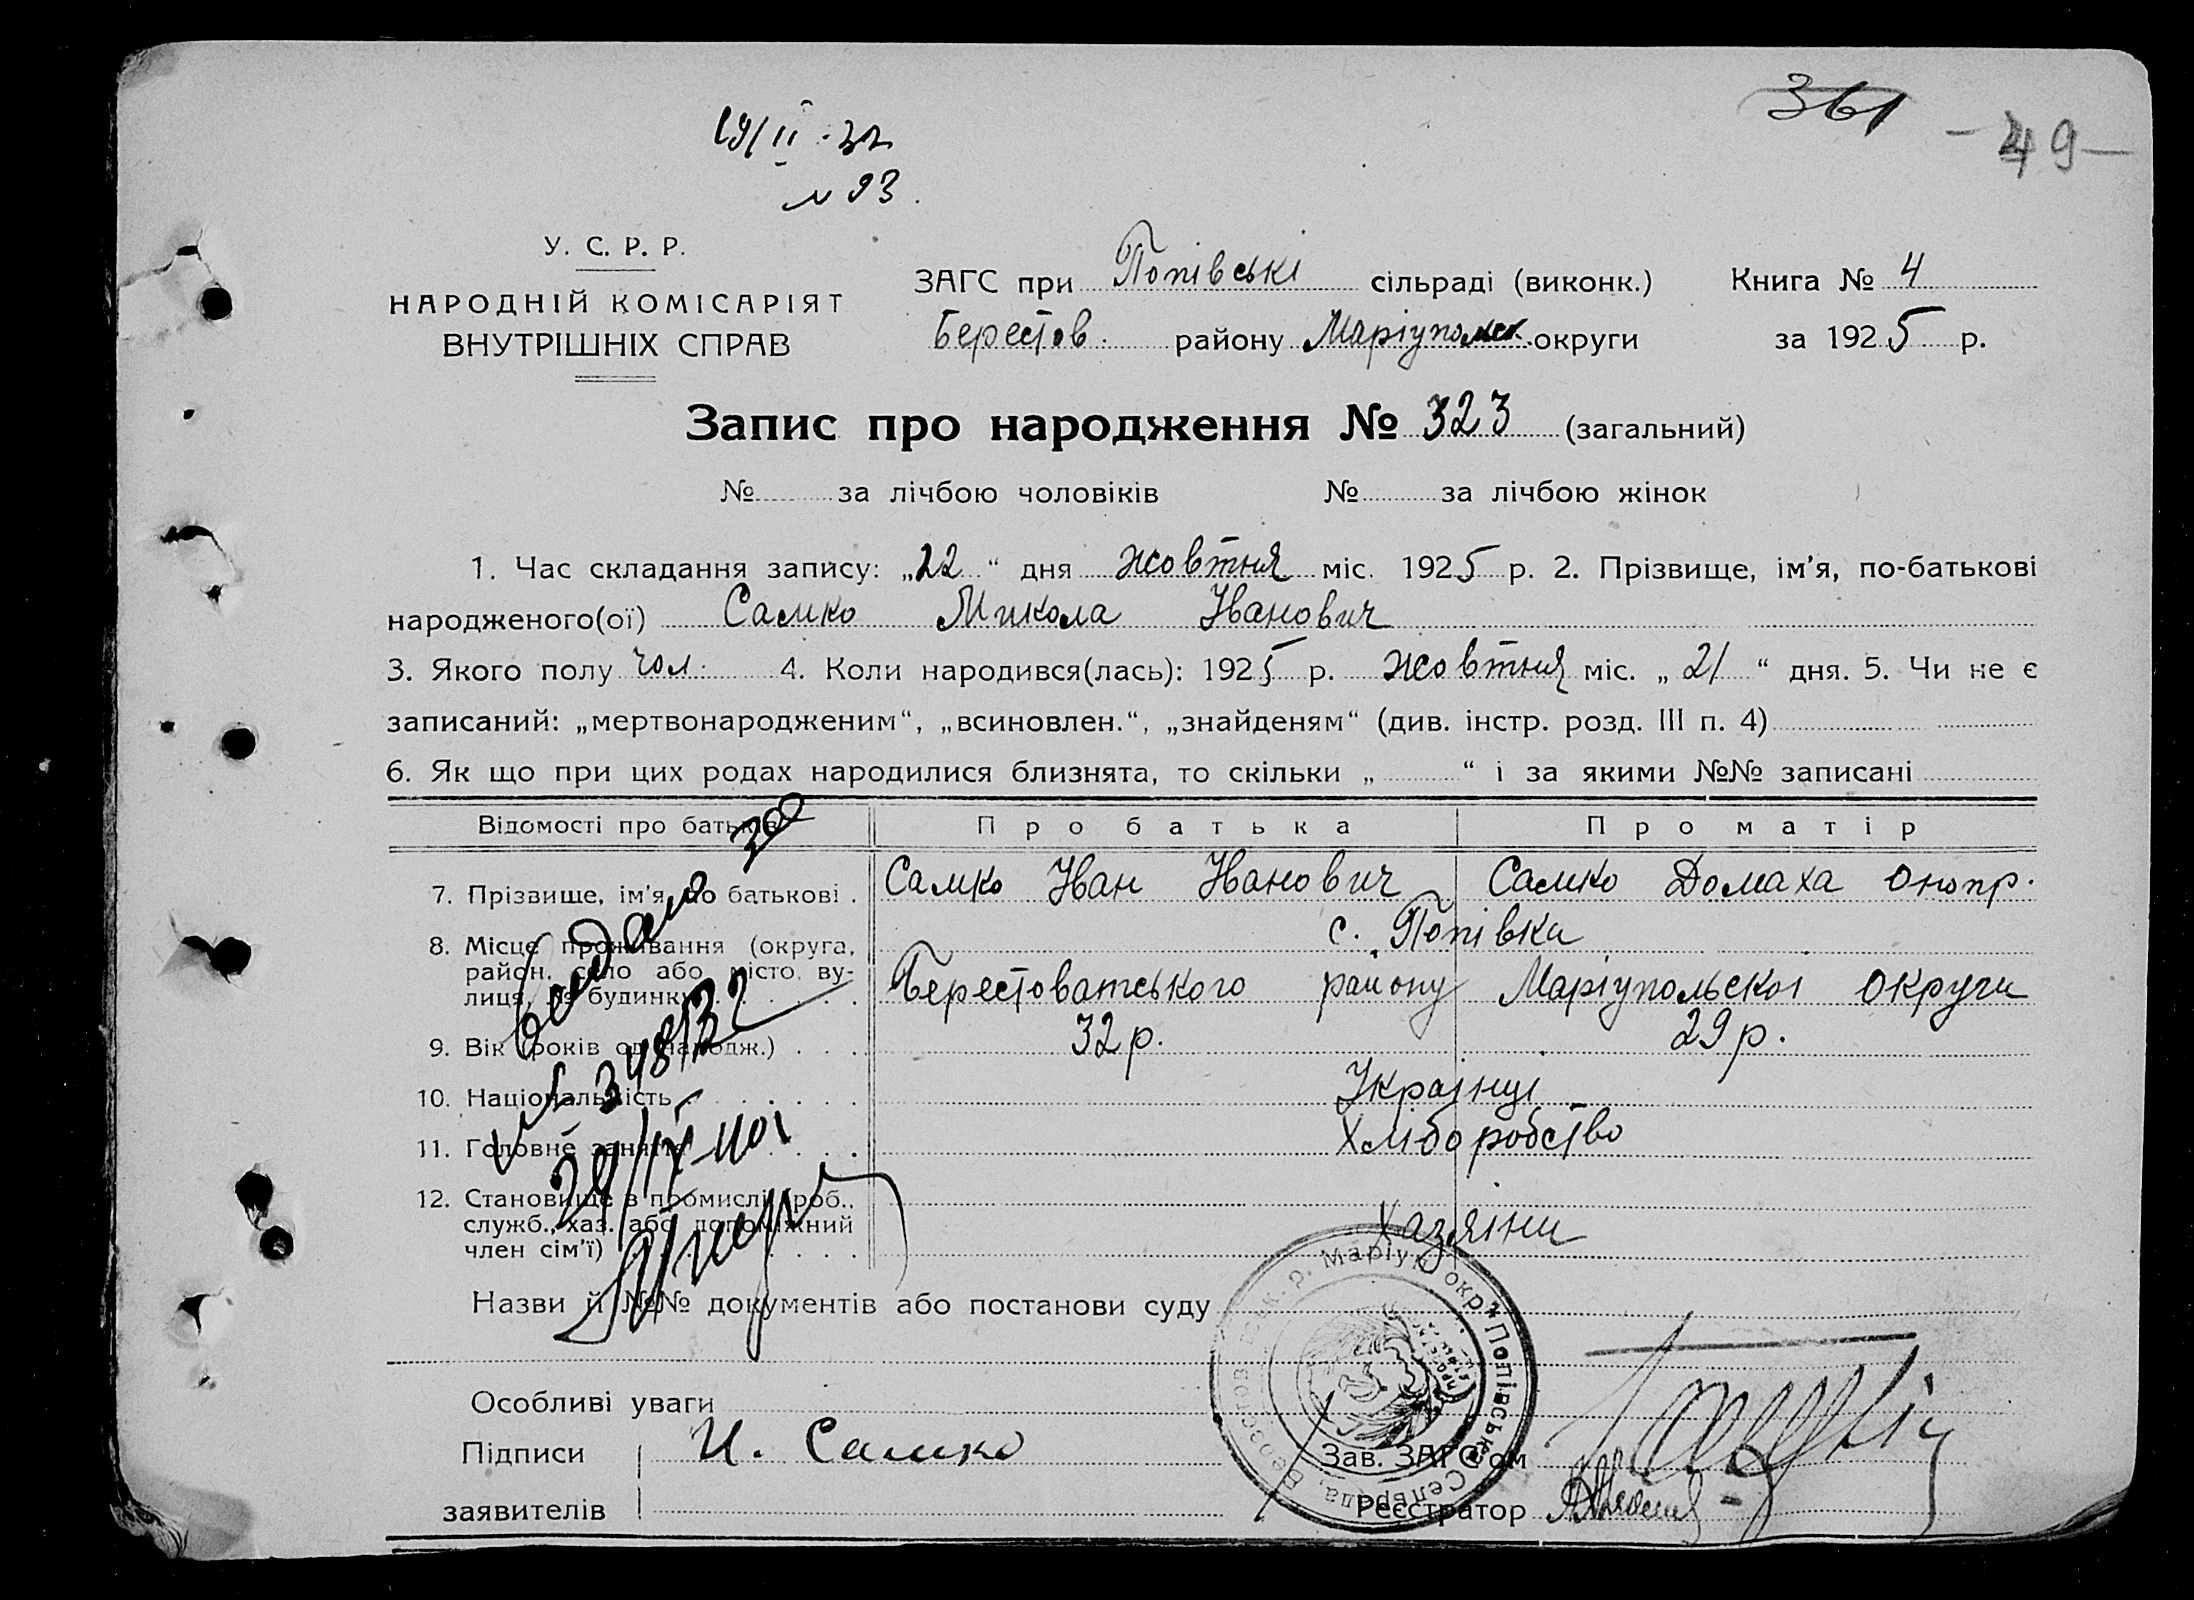 361
- 49 -
19/II-32
№ 93.
У. С. Р. Р.
НАРОДНІЙ КОМІСАРІЯТ
ВНУТРІШНІХ СПРАВ
ЗАГС при Попівські сільраді (виконк.) Книга № 4
Берестов. району Маріупольск. округи за 1925 р.
Запис про народження № 323 (загальний)
№ за лічбою чоловіків № за лічбою жінок
1. Час складання запису: „22“ дня жовтня міс. 1925 р. 2. Прізвище, ім’я, по-батькові
народженого(ої) Самко Микола Іванович
3. Якого полу чол. 4. Коли народився(лась): 1925 р. жовтня міс. „21“ дня. 5. Чи не є
записаний: „мертвонародженим“, „всиновлен.“, „знайденям“ (див. інстр. розд. III п. 4)
6. Як що при цих родах народилися близнята, то скільки „ “ і за якими №№ записані
Відомості про батьків Про батька Про матір
7. Прізвище, ім’я, по батькові . Самко Іван Іванович Самко Домаха Онопр.
8. Місце проживання (округа, с. Попівка
район, село або місто, ву-
лиця, № будинку Берестоватського району Маріупольскоі округи
9. Вік (років од народж.) . . . 32 р. 29 р.
10. Національність Украінці
11. Головне заняття Хліборобство
12. Становище в промислі (роб.,
служб., хаз. або допоміжний Хазяіни
член сім’ї)
Назви й №№ документів або постанови суду
Особливі уваги
Підписи И. Самко Зав. ЗАГС’ом
заявителів Реєстратор
Маріуп. окр. Попівська Сельрада